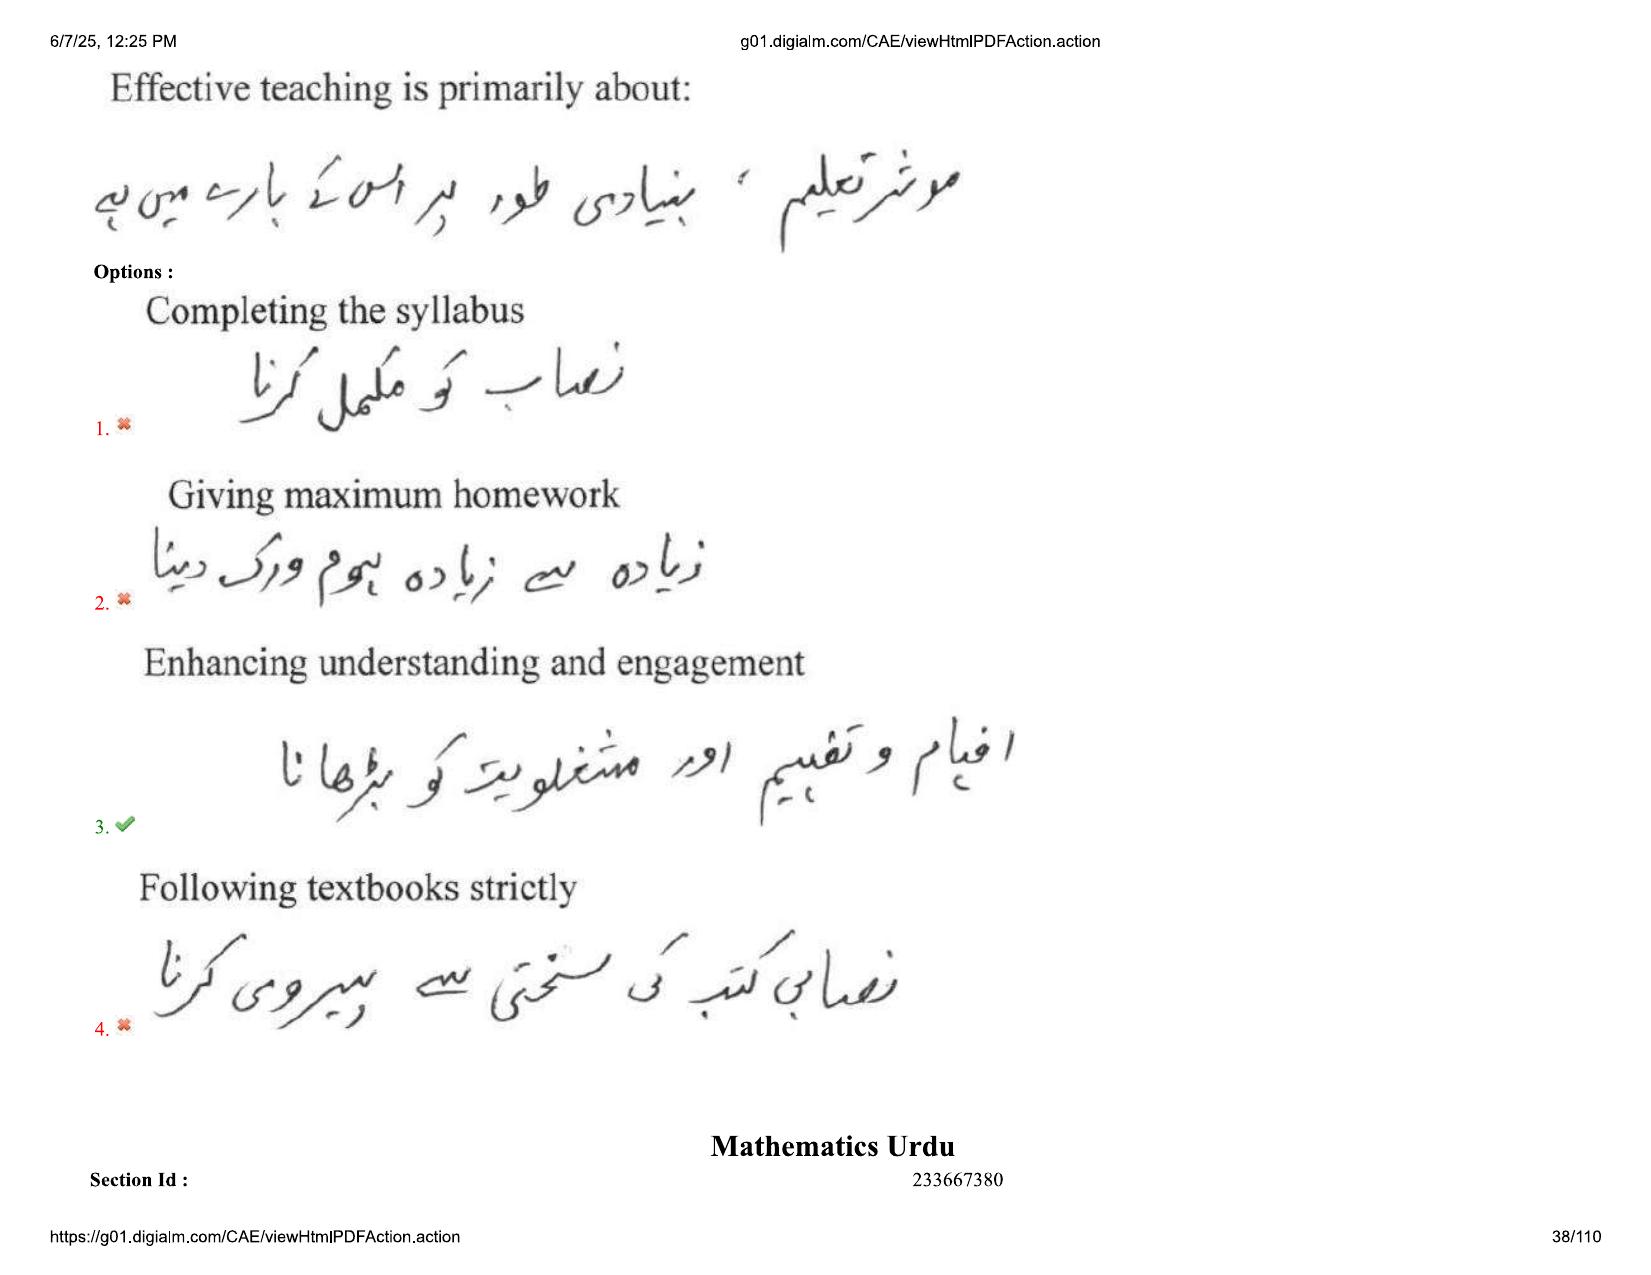 6/7/25, 12:25 PM
g01.digialm.com/CAE/viewHtmlPDFAction.action
Effective teaching is primarily about:
موثر تعلیم ، بنیادی طور پر اس کے بارے میں ہے
Options :
Completing the syllabus
نصاب کو مکمل کرنا
1.
Giving maximum homework
زیادہ سے زیادہ ہوم ورک دینا
2.
Enhancing understanding and engagement
افہام و تفہیم اور مشغلویت کو بڑھانا
3.
Following textbooks strictly
نصابی کتب کی سختی سے پیروی کرنا
4.
Mathematics Urdu
Section Id : 233667380
https://g01.digialm.com/CAE/viewHtmlPDFAction.action
38/110